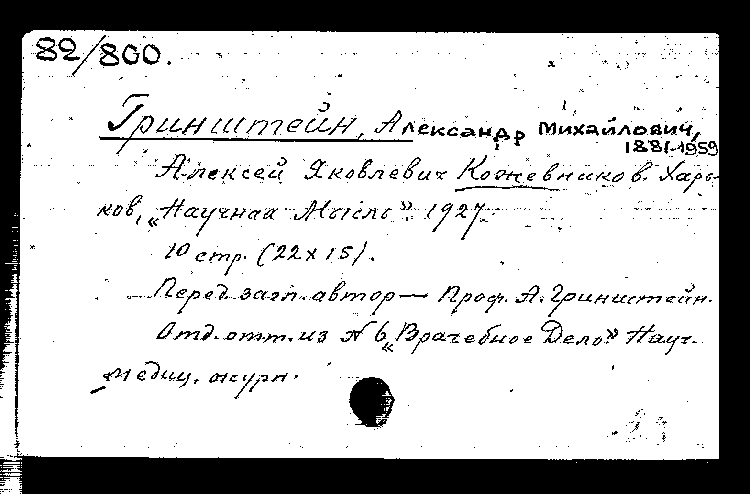 82/800.
Гринштейн, Александр Михайлович,
1881-1959
Алексей Яковлевич Кожевников. Харь-
ков, „Научная Мысль". 1927
10 стр. (22 x 15).
Перед загл. автор — Проф. А. Гринштейн.
Отд. отт. из № 6 „Врачебное Дело" Науч.
медиц. журн.